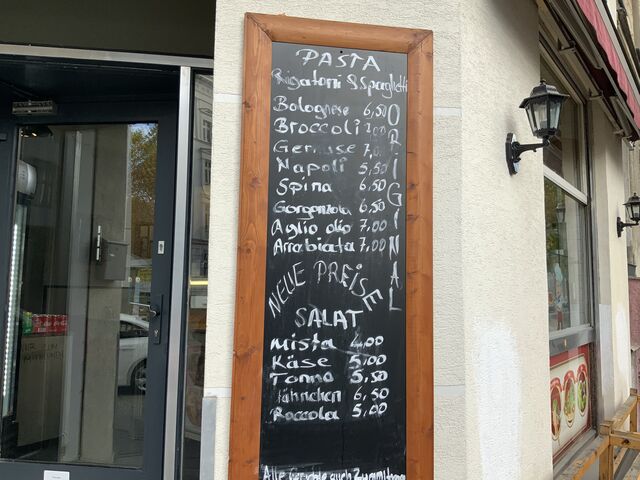 PASTA
Rigatoni & Spaghetti
Bolognese 6,50
Broccoli 7,00
Gemüse 7,00
Napoli 5,50
Spina 6,50
Gorgonzola 6,50
Aglio olio 7,00
Arrabiata 7,00
ORIGINAL
NEUE PREISE
SALAT
Mista 4,00
Käse 5,00
Tonno 5,50
Hähnchen 6,50
Roccola 5,00
Alle Gerichte auch Zum